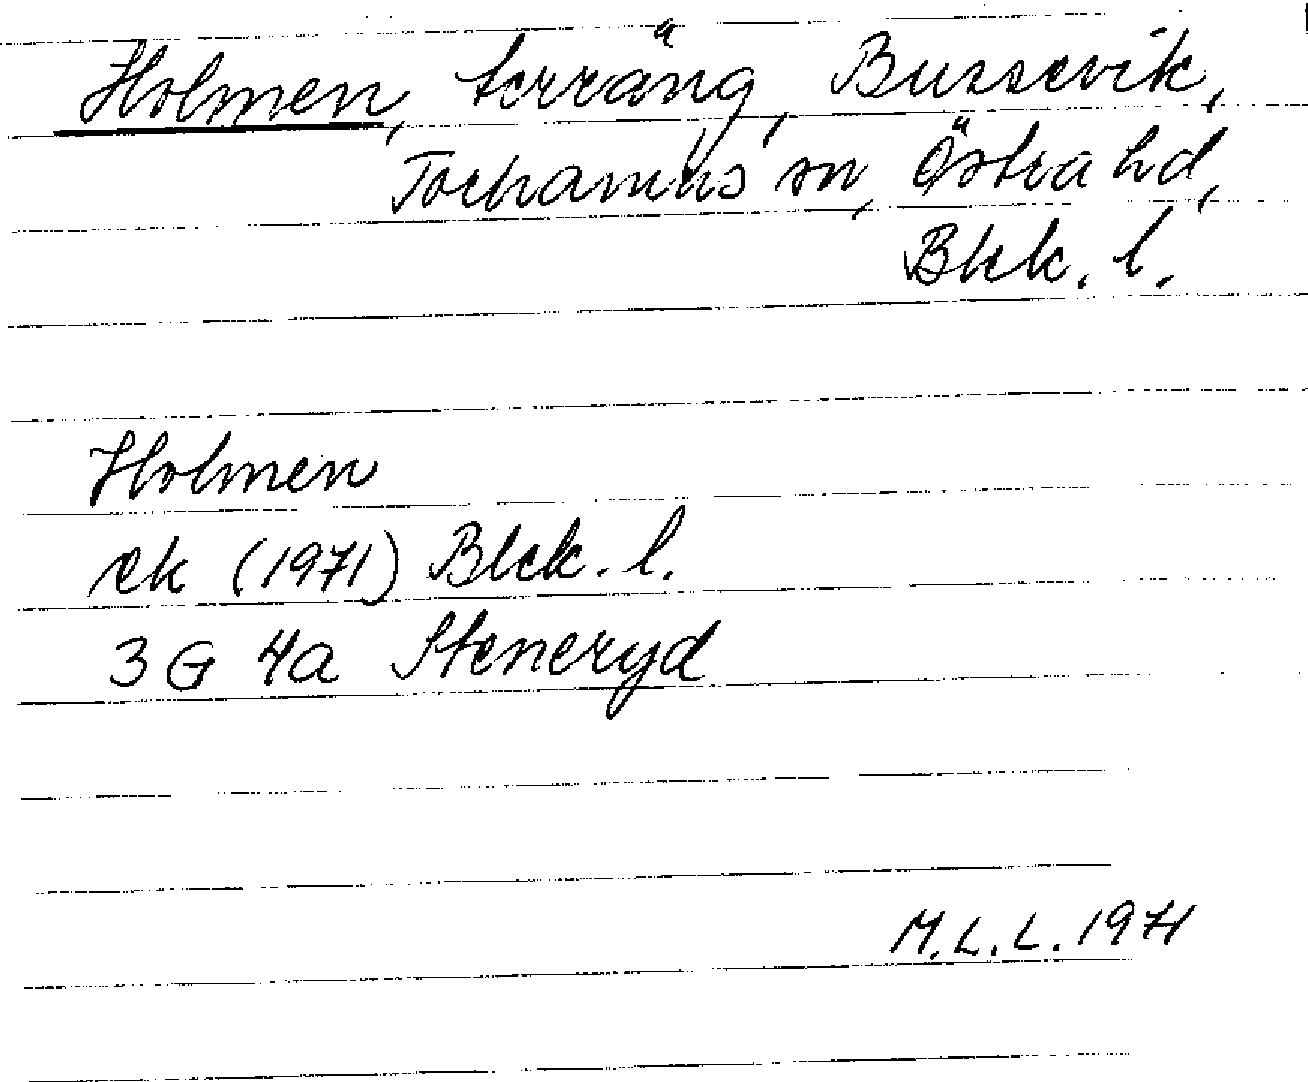 Holmen, terräng, Bussevik,
Torhamns sn, Östra hd,
Blek. l.
Holmen
ek (1971) Blek. l.
3 G 4a Steneryd
M.L.L. 1971